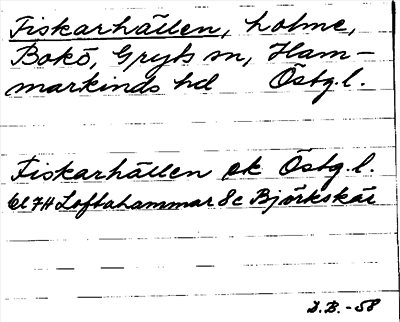 Fiskarhällen, holme,
Bokö, Gryts sn, Ham-
markinds hd Östg.l.
Fiskarhällen ek Östg.l.
61 7H Loftahammar 8c Björkskär
D.B. -58